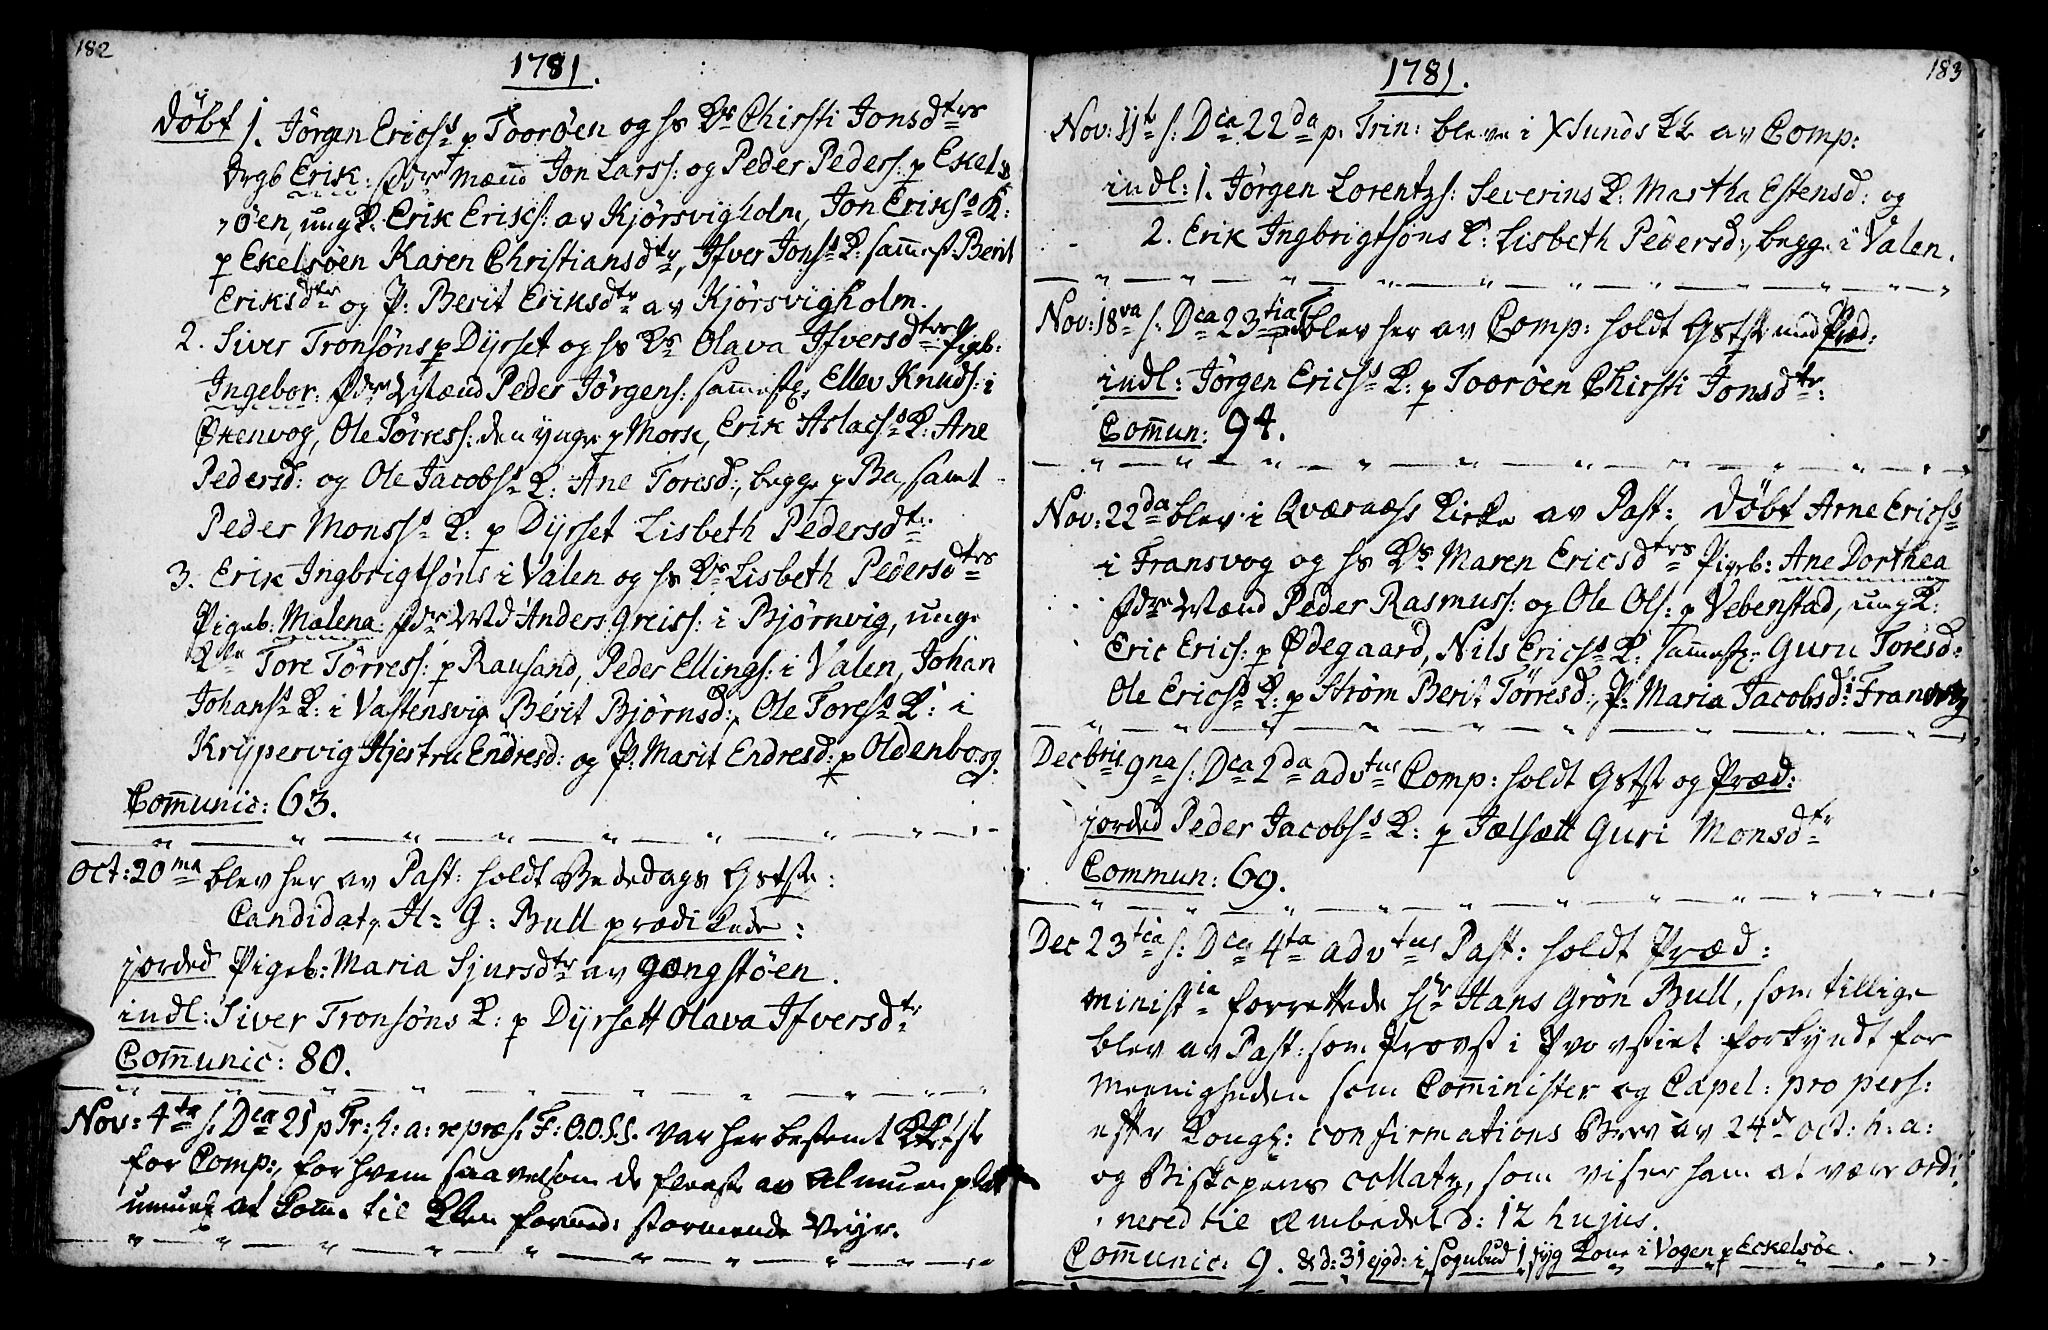 182
1781.
Döbt 1. Jörgen Erichs: p Toorøen og hs Ks Chirsti Jonsdtrs
Drgb Erik: fdre Mænd Jon Larss: og Peder Peders: p Ekels
øen, ung K: Erik Erics: av Kjörsvigholm, Jon Eriks K:
p Ekelsøen Karen Christiansdtr, Ifver Jons K: sammest Berit
Eriksdtr og P: Berit Eriksdtr av Kjörsvigholm.
2. Siver Tronsöns p Dÿrset og hs Ks Olava Ifversdtrs Pigb:
Ingebor: fdre Mænd Peder Jörgens: sammest, Ellev Knuds: i
Økenvog, Ole Törress: den ynge p Morse, Erik Aslachs K: Ane
Pedersd: og Ole Jacobs K: Ane Toresd:, begge p Bæ, samt
Peder Monss K: p Dÿrset Lisbeth Pedersdtr.
3. Erik Ingbrigtsöns i Valen og hs Ks Lisbeth Pedersdtrs
Pigeb: Malena: fdre Md Anders Greiss: i Bjørnvig, unge
Kle Tore Törress: p Rausand, Peder Ellings: i Valen, Johan
Johans K: i Vastensvig Berit Bjørnsd:, Ole Tores K: i
Krypervig Hjestru Endresd: og P: Marit Endresd: p Oldenborg.
Comunic: 63.
Oct: 20ma blev her av Past: holdt Bededags Gstste:
Candidat, H: G: Bull prædikede:
jorded Pigeb: Maria Sjursdtr av gangstøen.
indl: Siver Tronsöns K: p Dÿrsett Olava Ifversdtr
Comunic: 80.
Nov: 4ta s: Dca 21 p Tr: h: a: repræs: F: O.O.S.S. var her bestemt Ktste
for Comp:, for hvem saavelsom de fleeste av Almuen plat
umuel at Kome til Kken formed: stormende Veÿr.
183
1781.
Nov: 11te s: Dca 22da p: Trin: bleve i Xsunds KK av Comp:
indl: 1. Jörgen Lorentzs: Severins K: Martha Estensd: og
2. Erik Ingbrigtsöns K: Lisbeth Pedersd:, begge i Valen.
Nov: 18va s: Dca 23tia blev her av Comp: holdt Gstste med Præd:
indl: Jörgen Erics K: p Toorøen Chirsti Jonsdtr:
Comun: 94.
Nov: 22da blev i Qværnæss Kirke av Past: Döbt Arne Erichs
i Fransvog og hs Ks Maren Ericsdtrs Pigeb: Ane Dorthea
fdre Mænd Peder Rasmuss: og Ole Ols: p Vebenstad, ung K:
Eric Erics: p Ødegaard, Nils Erics K: sammest, Guru Toresd:
Ole Erics K: p Strøm Berit Törresd:, P: Maria Jacobsd: Fransvog
Decbris 9na s: Dca 2da advtus Comp: holdt Gstste og Præd:
jorded Peder Jacobs K: p Jælsætt Guri Monsdtr
Commun: 69.
Dec 23tia s: Dca 4ta advtus Past: holdt Præd:
ministia forrettede Hr Hans Grön Bull, som tillige
blev av Past: som Provst i Provstiet forkyndt for
Meenigheden som Cominister og Capel: pro pers:
efter Kongl: confirmations Brev av 24de oct: h: a:
og Biskopens collatz, som viser ham at være ordi
nered til Embedet D: 12 hujus.
Comunic: 9. & d: 31 ejgd: i Sognebud 1 syg Kone i Vogen p Eckelsöe.